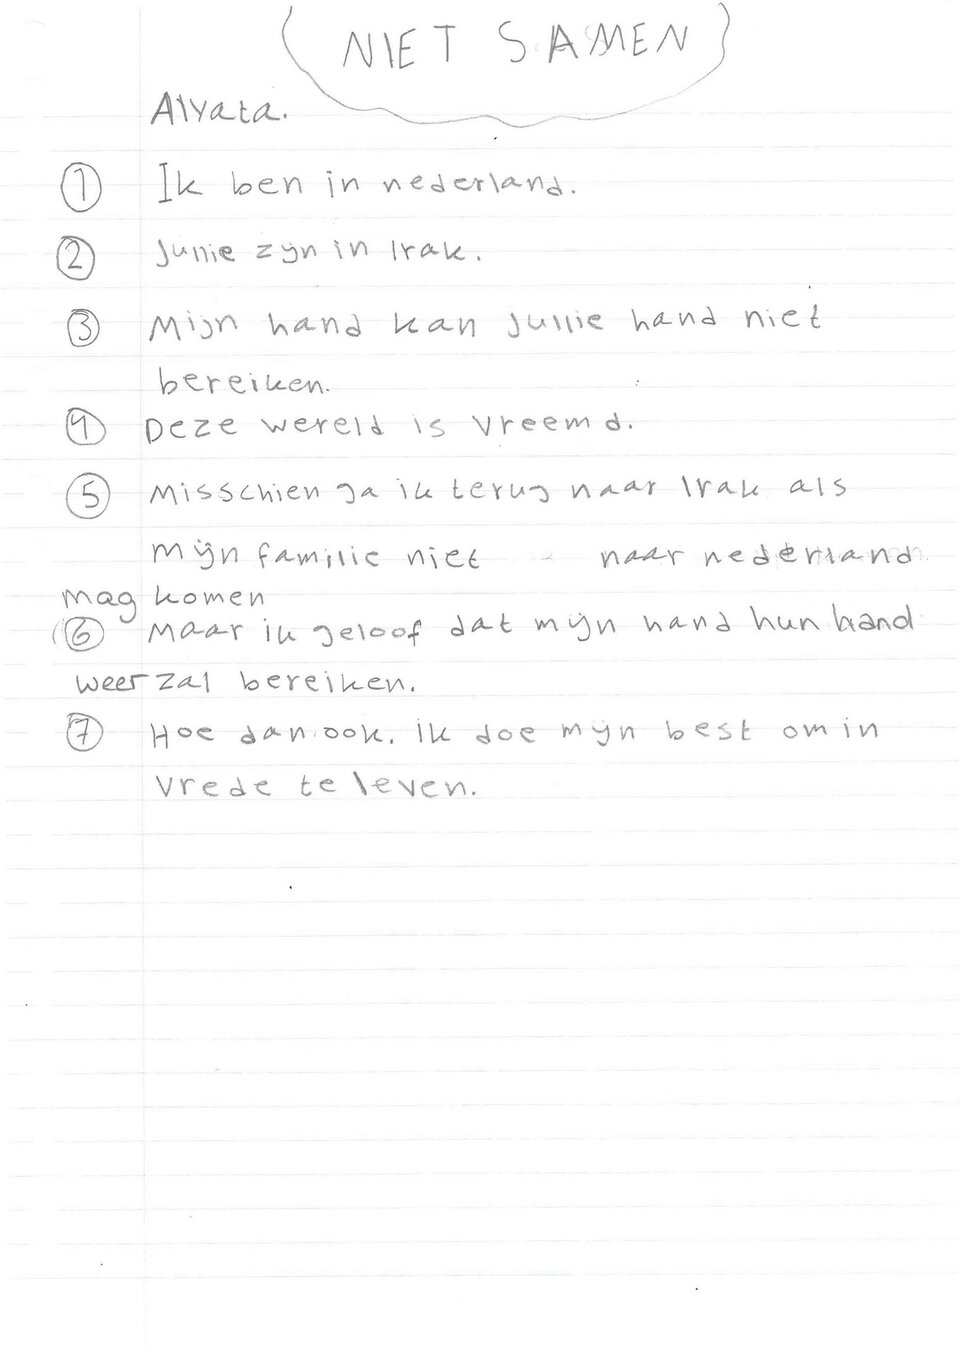 NIET SAMEN
Alyata.
1 Ik ben in nederland.
2 Jullie zijn in Irak.
3 Mijn hand kan jullie hand niet
bereiken.
4 Deze wereld is vreemd.
5 Misschien ga ik terug naar Irak als
mijn familie niet naar nederland
mag komen
6 Maar ik geloof dat mijn hand hun hand
weer zal bereiken.
7 Hoe dan ook. ik doe mijn best om in
vrede te leven.